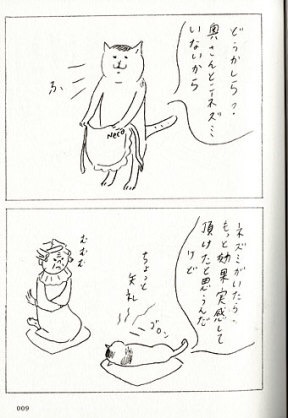 どうかしらっ。
奥さんとこネズミ
いないから
ふ
Neco
ネズミがいたら、
もっと効果実感して
頂けたと思うんだ
けど
ちょっと
失礼
ゴロン
むむむ
009